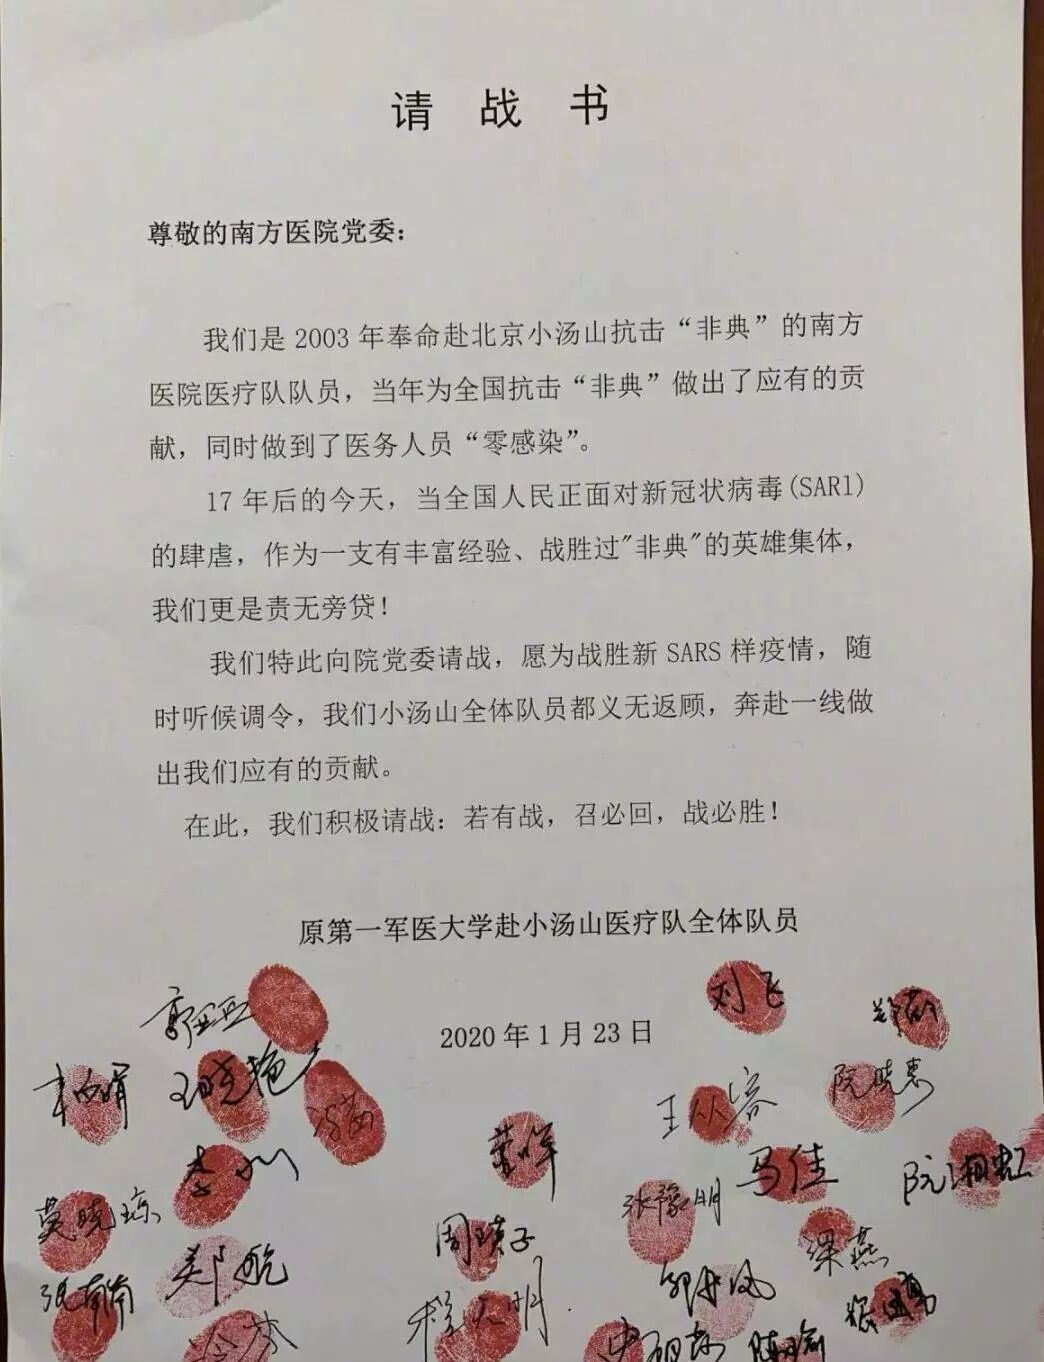 请战书
尊敬的南方医院党委：
我们是2003年奉命赴北京小汤山抗击“非典”的南方
医院医疗队队员，当年为全国抗击“非典”做出了应有的贡
献，同时做到了医务人员“零感染”。
17年后的今天，当全国人民正面对新冠状病毒(SARI)
的肆虐，作为一支有丰富经验、战胜过"非典"的英雄集体，
我们更是责无旁贷！
我们特此向院党委请战，愿为战胜新SARS样疫情，随
时听候调令，我们小汤山全体队员都义无返顾，奔赴一线做
出我们应有的贡献。
在此，我们积极请战：若有战，召必回，战必胜！
原第一军医大学赴小汤山医疗队全体队员
2020年1月23日
刘飞
王从容
阮晓惠
马佳
阮湘虹
张豫明
莫晓琼
周瑱子
梁燕
郑航
张南南